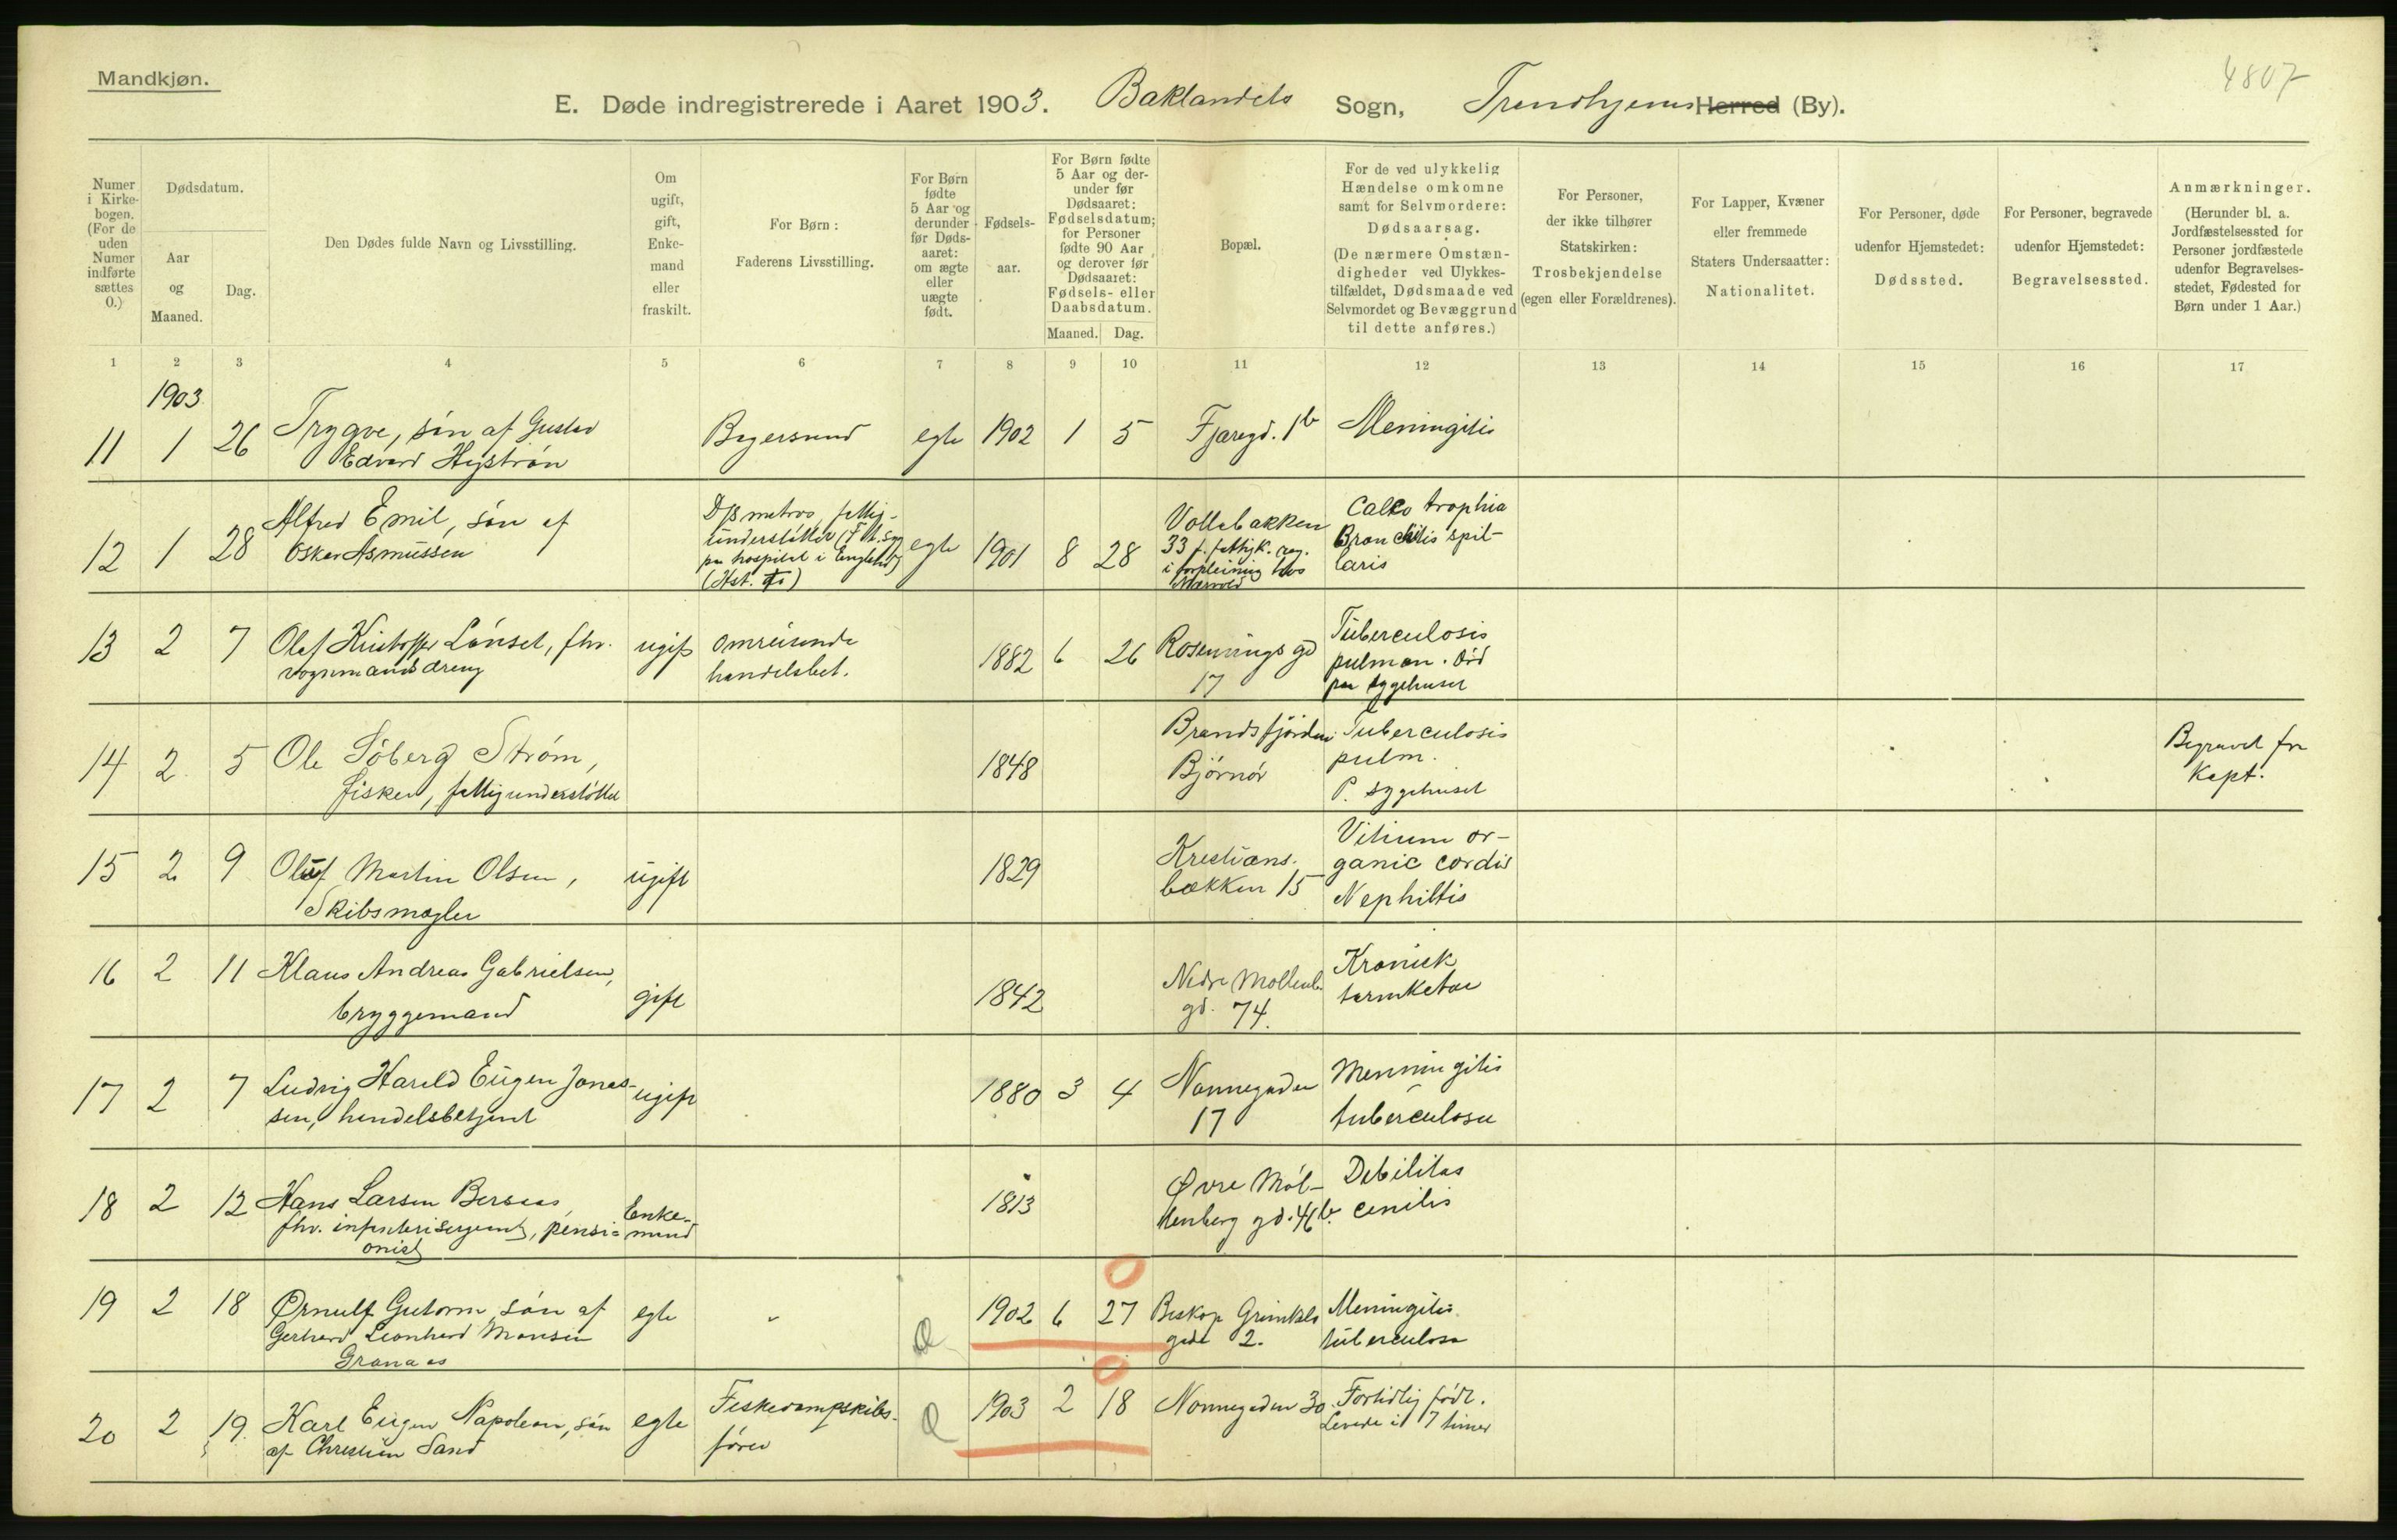 Mandkjøn.
4807
E. Døde indregistrerede i Aaret 1903. Baklandets Sogn, Trondhjems Herred (By).
Numer i Kirkebogen. (For de uden Numer indførte sættes 0.)
Dødsdatum.
Aar og Maaned.
Dag.
Den Dødes fulde Navn og Livsstilling.
Om ugift, gift, Enkemand eller fraskilt.
For Børn: Faderens Livsstilling.
For Børn fødte 5 Aar og derunder før Dødsaaret: om ægte eller uægte født.
Fødselsaar.
For Børn fødte 5 Aar og derunder før Dødsaaret: Fødselsdatum; for Personer fødte 90 Aar og derover før Dødsaaret: Fødsels- eller Daabsdatum.
Maaned. Dag.
Bopæl.
For de ved ulykkelig Hændelse omkomne samt for Selvmordere: Dødsaarsag. (De nærmere Omstændigheder ved Ulykkestilfældet, Dødsmaade ved Selvmordet og Bevæggrund til dette anføres.)
For Personer, der ikke tilhører Statskirken: Trosbekjendelse (egen eller Forældrenes).
For Lapper, Kvæner eller fremmede Staters Undersaatter: Nationalitet.
For Personer, døde udenfor Hjemstedet: Dødssted.
For Personer, begravede udenfor Hjemstedet: Begravelsessted.
Anmærkninger. (Herunder bl. a. Jordfæstelsessted for Personer jordfæstede udenfor Begravelsesstedet, Fødested for Børn under 1 Aar.)
1 2 3 4 5 6 7 8 9 10 11 12 13 14 15 16 17
1903
11 1 26 Trygve, søn af Gustav
Edvard Hystrøn
Bagersvend egte 1902 1 5 Fjæregd. 1b Meningitis
12 1 28 Alfred Emil, søn af
Oskar Asmussen
D/S matros, fattig-
understøttet
paa hospital i England)
egte 1901 8 28
Vollabakken
33 f. fattigk. reg.
i forpleining hos
Calko trophia
Bronchitis spil-
laris
13 2 7 Olaf Kristoffer Lønset, fhv.
vognmandsdreng
ugift omreisende
handelsbet.
1882 6 26 Rosenborgs gd
17
Tuberculosis
pulmon. død
paa sygehuset
14 2 5 Ole Søberg Strøm,
fisker, fattigunderstøttet
1848 Brandsfjorden
Bjørnør
Tuberculosis
pulm.
P. sygehuset
Begravet fra
Kapt.
15 2 9 Oluf Martin Olsen,
Skibsmægler
ugift 1829 Kristians-
bakken 15
Vitium or-
ganic cordis
Nephiltis
16 2 11 Klaus Andreas Gabrielsen,
bryggemand
gift 1842 Nedre Mollenb.
gd. 74.
Kronick
tarmkatar
17 2 7 Ludvig Harald Eugen Jonas-
sen, handelsbetjent
ugift 1880 3 4 Nonnegaden
17
Menningitis
tuberculosa
18 2 12 Hans Larsen Bersaas,
fhv. infanterisergeant, pensi-
onist
Enke-
mand
1813 Øvre Møl-
lenberg gd. 46b.
Debilitas
cenilis
19 2 18 Ørnulf Gutorm, søn af
Gerhard Leonhard Monsen
Granaas
egte " 1902 6 27 Biskop Grimkels
gade 2.
Meningitis
tuberculosa
20 2 19 Karl Eugen Napoleon, søn
af Christian Sand
egte Fiskedampskibs-
fører
1903 2 18 Nonnegaden 30. Fortidlig født.
Levede i 7 timer